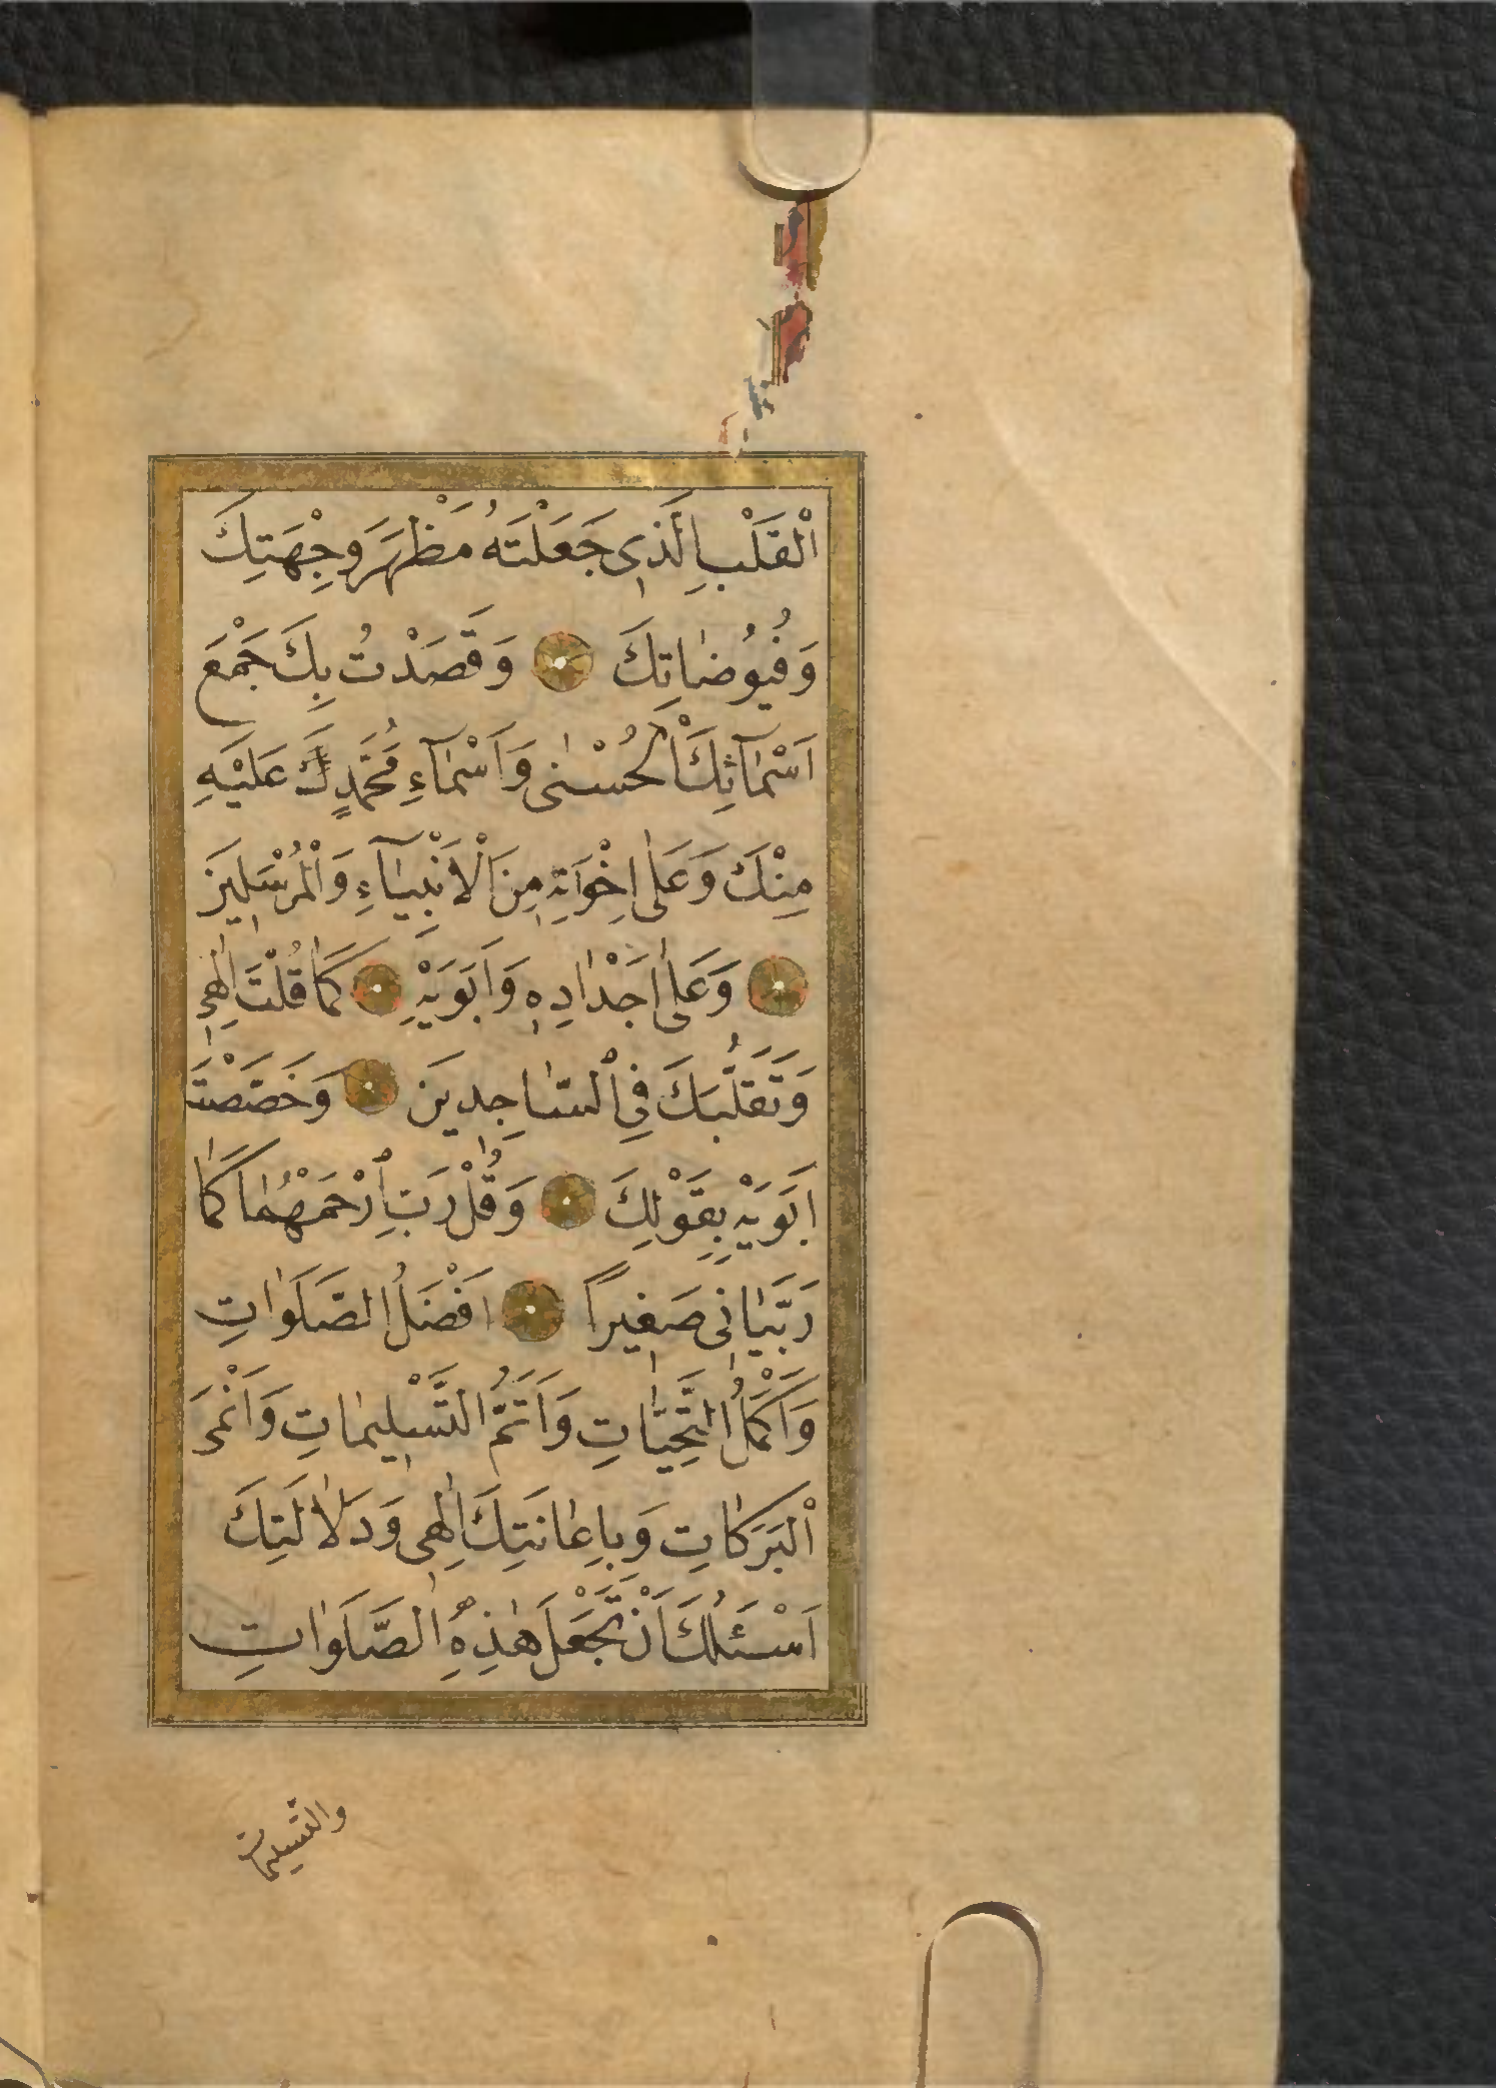 اَلْقَلْبِ الَّذِى جَعَلْتَهُ مَظْهَرَ وِجْهَتِكَ
وَفُيُوضَاتِكَ وَقَصَدْتُ بِكَ جَمْعَ
اَسْمَآئِكَ الْحُسْنٰى وَاَسْمَآءِ مُحَمَّدٍ عَلَيْهِ
مِنْكَ وَعَلٰى اِخْوَتِهِ مِنَ الْاَنْبِيَآءِ وَالْمُرْسَلِينَ
وَعَلٰى اَجْدَادِهِ وَاَبَوَيْهِ كَمَا قُلْتَ اِلٰهِى
وَتَقَلُّبَكَ فِى السَّاجِدِينَ وَخَصَصْتَ
اَبَوَيْهِ بِقَوْلِكَ وَقُلْ رَبِّ ارْحَمْهُمَا كَمَا
رَبَّيَانِى صَغِيرًا اَفْضَلُ الصَّلَوَاتِ
وَاَكْمَلُ التَّحِيَّاتِ وَاَتَمُّ التَّسْلِيمَاتِ وَاَنْمَى
الْبَرَكَاتِ وَبِاِعَانَتِكَ اِلٰهِى وَدَلَالَتِكَ
اَسْئَلُكَ اَنْ تَجْعَلَ هٰذِهِ الصَّلَوَاتِ
والتسليمات